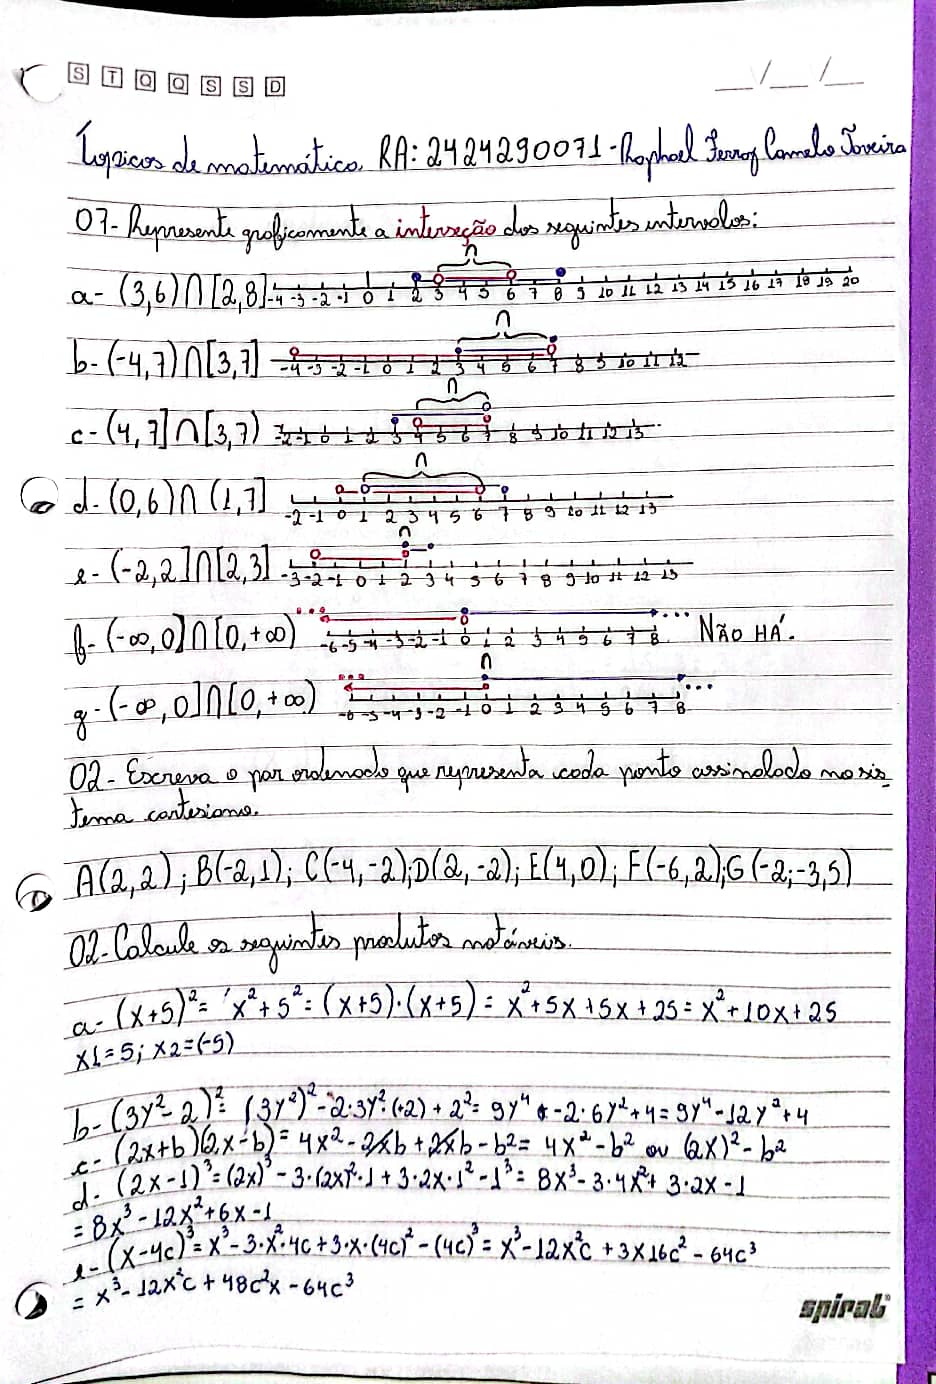 S T Q Q S S D __/__/__
Topicos de matemática. RA: 2424290071 - Raphael Ferraz Camelo Toveira
07- Represente graficamente a interseção dos seguintes intervalos:
∩
a- (3,6)∩[2,8] -4 -3 -2 -1 0 1 2 3 4 5 6 7 8 9 10 11 12 13 14 15 16 17 18 19 20
∩
b- (-4,7)∩[3,7] -4 -3 -2 -1 0 1 2 3 4 5 6 7 8 9 10 11 12
∩
c- (4,7]∩[3,7) -2 -1 0 1 2 3 4 5 6 7 8 9 10 11 12 13
∩
d- (0,6)∩(1,7] -2 -1 0 1 2 3 4 5 6 7 8 9 10 11 12 13
∩
e- (-2,2]∩[2,3] -3 -2 -1 0 1 2 3 4 5 6 7 8 9 10 11 12 13
f- (-∞,0]∩[0,+∞) ... -6 -5 -4 -3 -2 -1 0 1 2 3 4 5 6 7 8 ... NÃO HÁ.
∩
g- (-∞,0]∩[0,+∞) ... -6 -5 -4 -3 -2 -1 0 1 2 3 4 5 6 7 8 ...
02- Escreva o par ordenado que representa cada ponto assinalado no sis-
tema cartesiano.
A(2,2); B(-2,1); C(-4,-2); D(2,-2); E(4,0); F(-6,2); G(-2;-3,5)
02- Calcule os seguintes produtos notáveis.
a- (x+5)² = x²+5² = (x+5)·(x+5) = x²+5x+5x+25 = x²+10x+25
x1=5; x2=(-5)
b- (3y²-2)² = (3y²)²-2·3y²·(+2)+2² = 9y⁴+-2·6y²+4 = 9y⁴-12y²+4
c- (2x+b)(2x-b) = 4x²-2xb+2xb-b² = 4x²-b² ou (2x)²-b²
d- (2x-1)³ = (2x)³-3·(2x)²·1+3·2x·1²-1³ = 8x³-3·4x²+3·2x-1
= 8x³-12x²+6x-1
e- (x-4c)³ = x³-3·x²·4c+3·x·(4c)²-(4c)³ = x³-12x²c+3x16c²-64c³
= x³-12x²c+48c²x-64c³
spiral